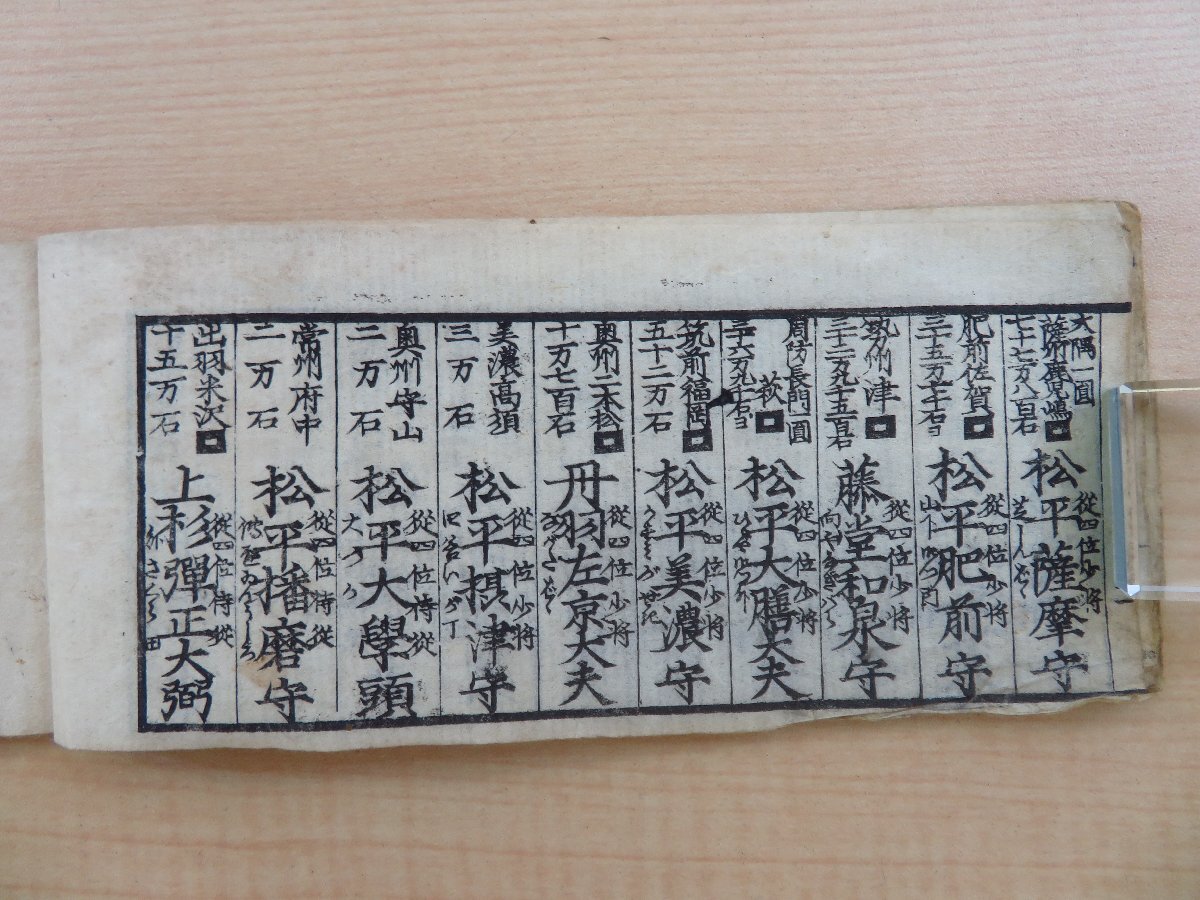 大隅一圓
薩州鹿児嶋
七十七万八百石
松平薩摩守
従四位少将
肥前佐賀
三十五万七千石ヨ
松平肥前守
従四位少将
勢州津
三十二万九千五百石
藤堂和泉守
従四位少将
周防長門一圓
萩
三十六万九千石ヨ
松平大膳大夫
従四位少将
筑前福岡
五十二万石
松平美濃守
従四位少将
奥州二本松
十万七百石
丹羽左京大夫
従四位少将
美濃高須
三万石
松平摂津守
従四位少将
奥州守山
二万石
松平大學頭
従四位侍従
常州府中
二万石
松平播磨守
従四位侍従
出羽米沢
十五万石
上杉彈正大弼
従四位侍従